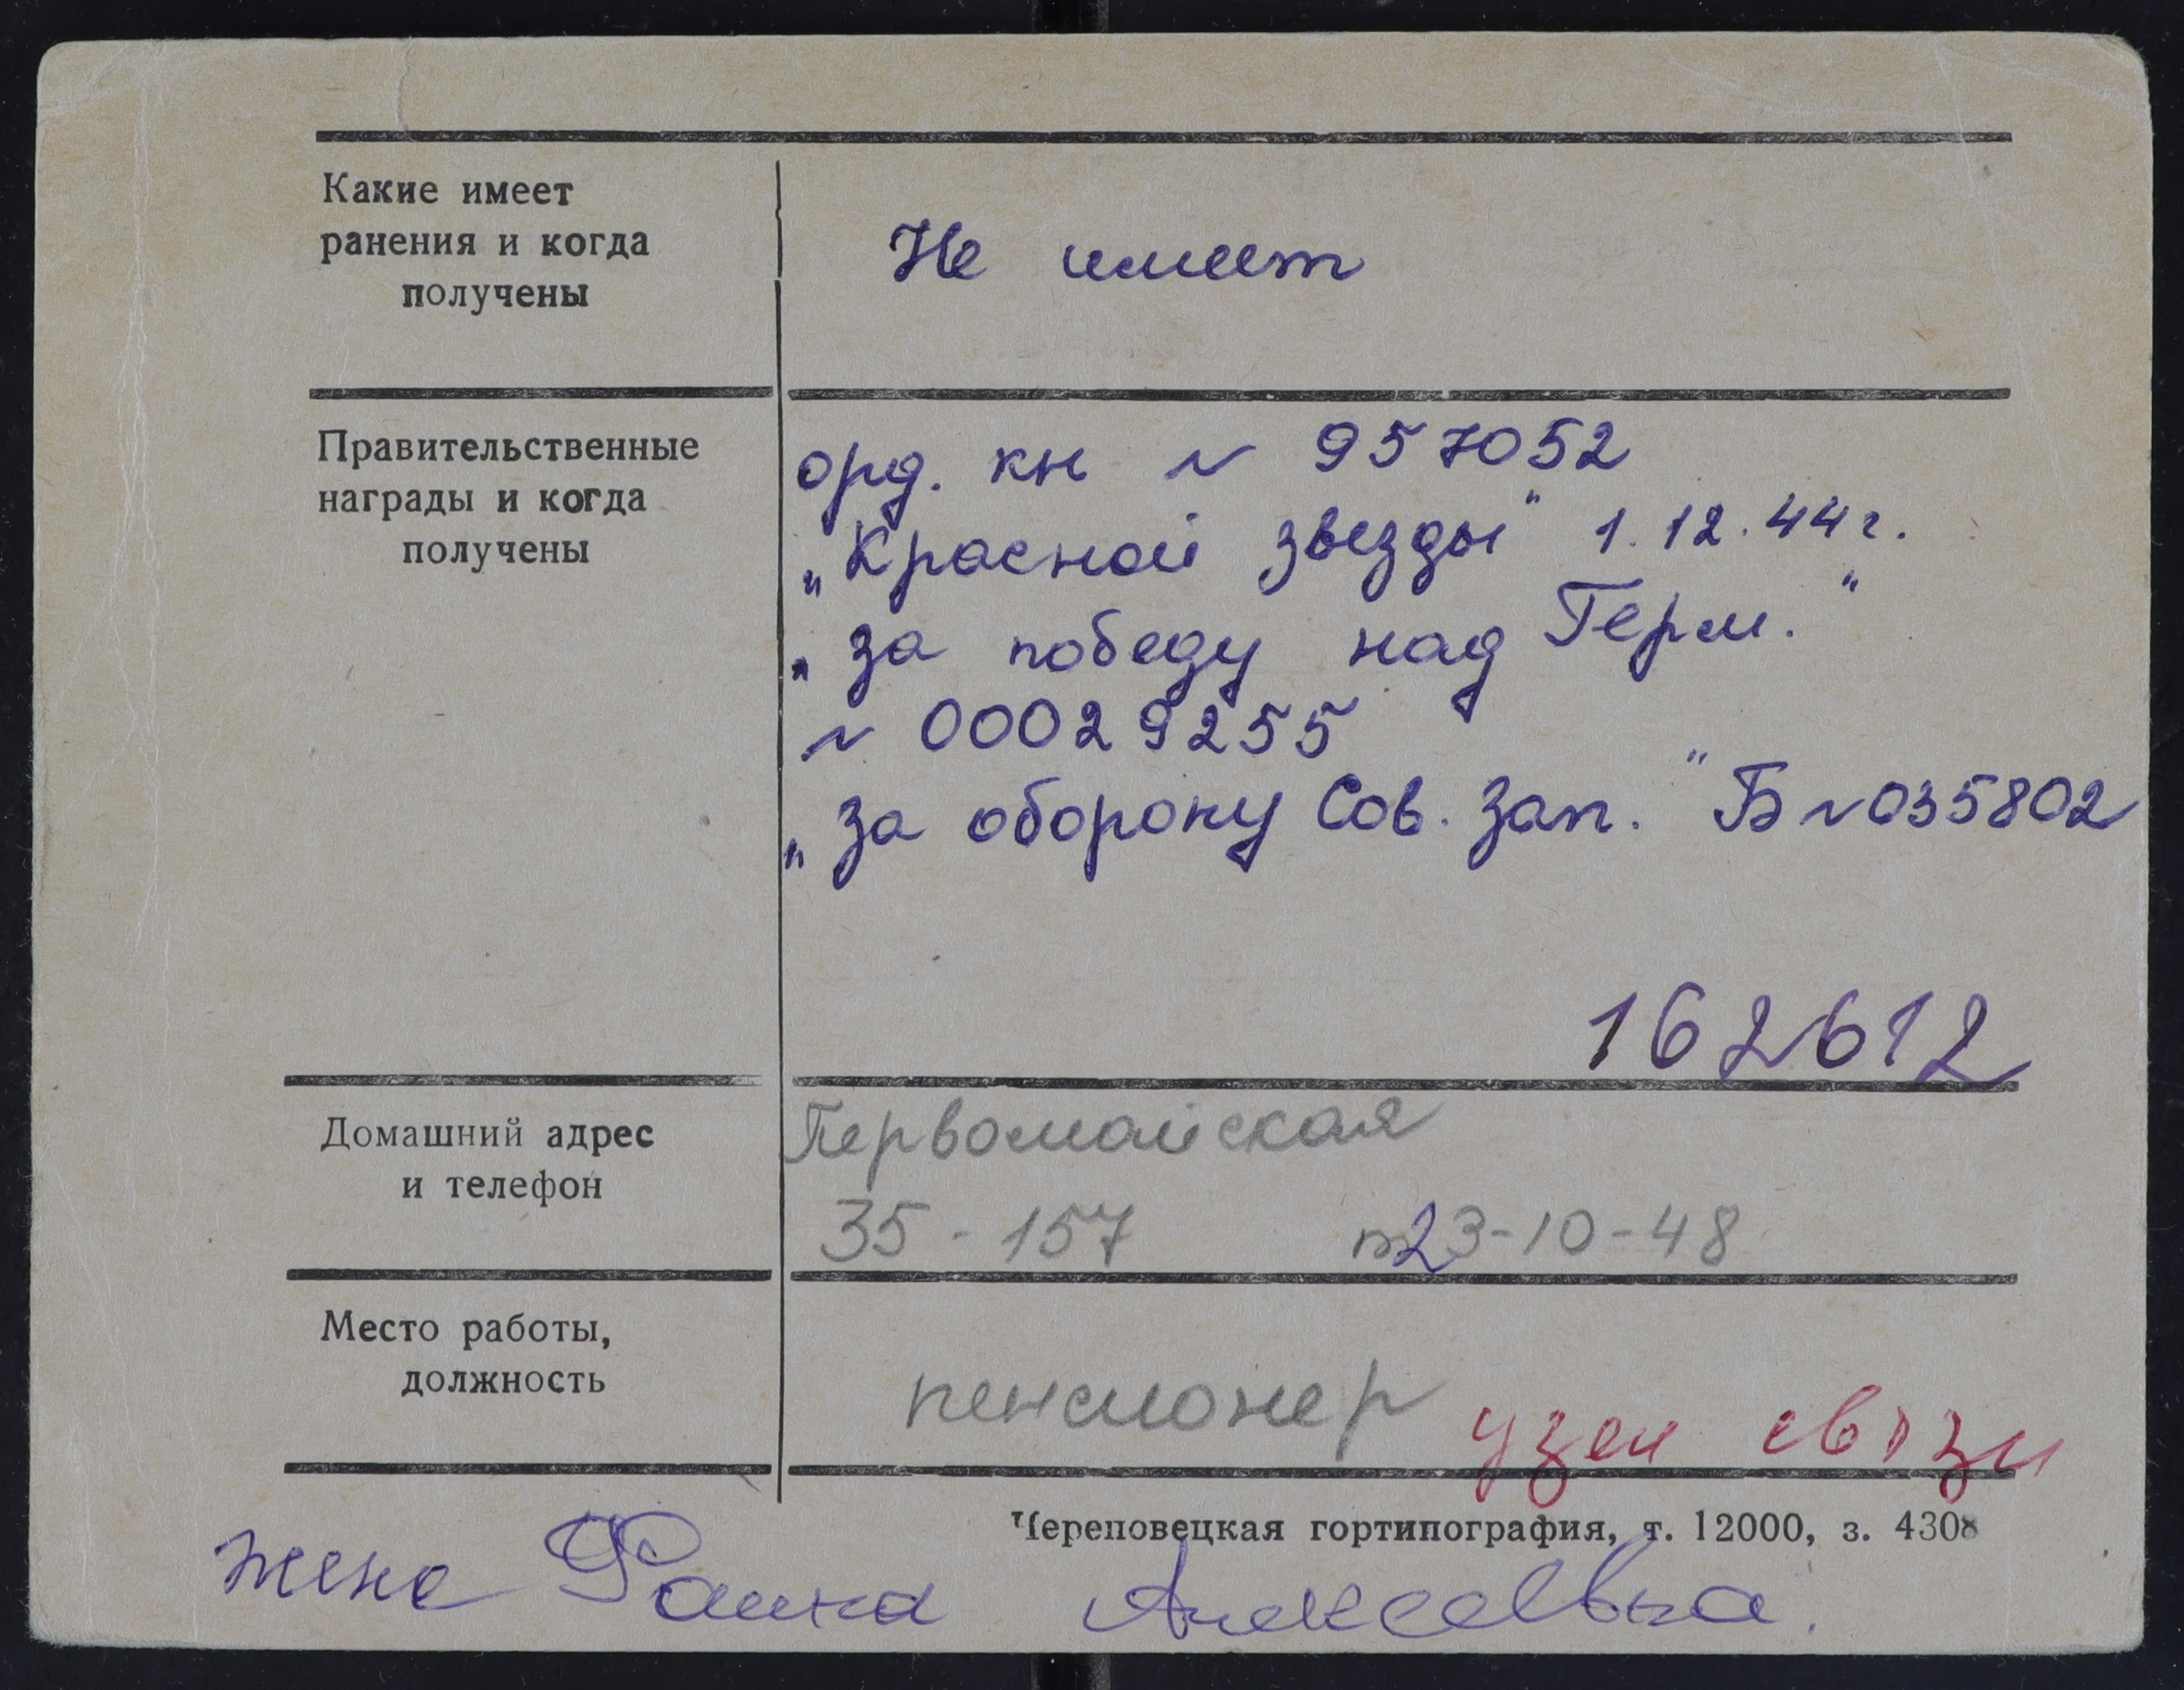 Какие имеет
ранения и когда
получены
Не имеет
Правительственные
награды и когда
получены
орд. кн № 957052
„Красной звезды" 1.12.44 г.
„за победу над Герм."
№ 00029255
„за оборону Сов. Зап." Б №035802
162612
Домашний адрес
и телефон
Первомайская
35-157 т23-10-48
Место работы,
должность
пенсионер узел связи
Череповецкая гортипография, т. 12000, з. 4308
жена Фаина Алексеевна.